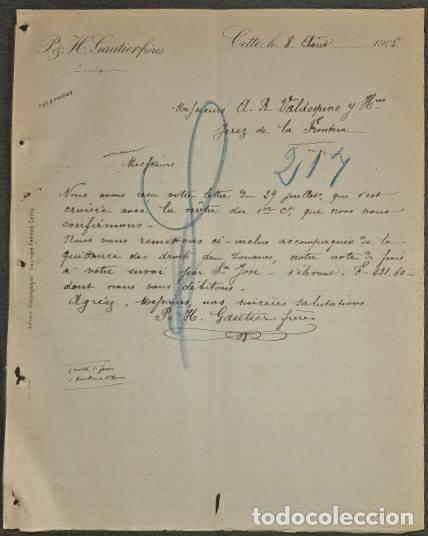 P. & H. Gautier frères
Cette, le 8 Août 1905
TÉLÉPHONE
Messieurs A. R. Valdespino y Hno
Jerez de la Frontera
217
Messieurs
Nous avons reçu votre lettre du 29 juillet, qui s'est
croisée avec la nôtre du 1er Ct, que nous vous
confirmons.
Nous vous remettons ci-inclus accompagnée de la
quittance des droits de Douanes, notre note de frais
à votre envoi par Sn José - s'élevant à F- 231.60-
dont nous vous débitons.-
Agréez, Messieurs, nos sincères salutations
P. & H. Gautier frères
1 note de frais
todocoleccion.net